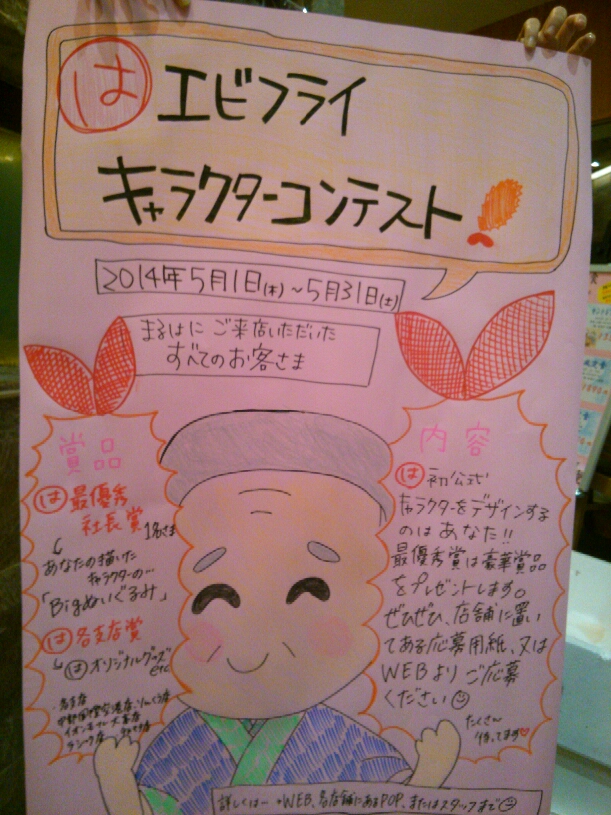 は エビフライ
キャラクターコンテスト
2014年5月1日(木)~5月31日(土)
まるはにご来店いただいた
すべてのお客さま
賞品
は 最優秀
社長賞 1名さま
あなたの描いた
キャラクターの…
「Bigぬいぐるみ」
は 各支店賞
は オリジナルグッズ
etc
内容
は 初公式
キャラクターをデザインする
のはあなた!!
最優秀賞は豪華賞品
をプレゼントします。
ぜひぜひ、店舗に置い
てある応募用紙、又は
WEBよりご応募
ください
たくさん
待ってます♥
詳しくは… →WEB、各店舗にあるPOP、またはスタッフまで